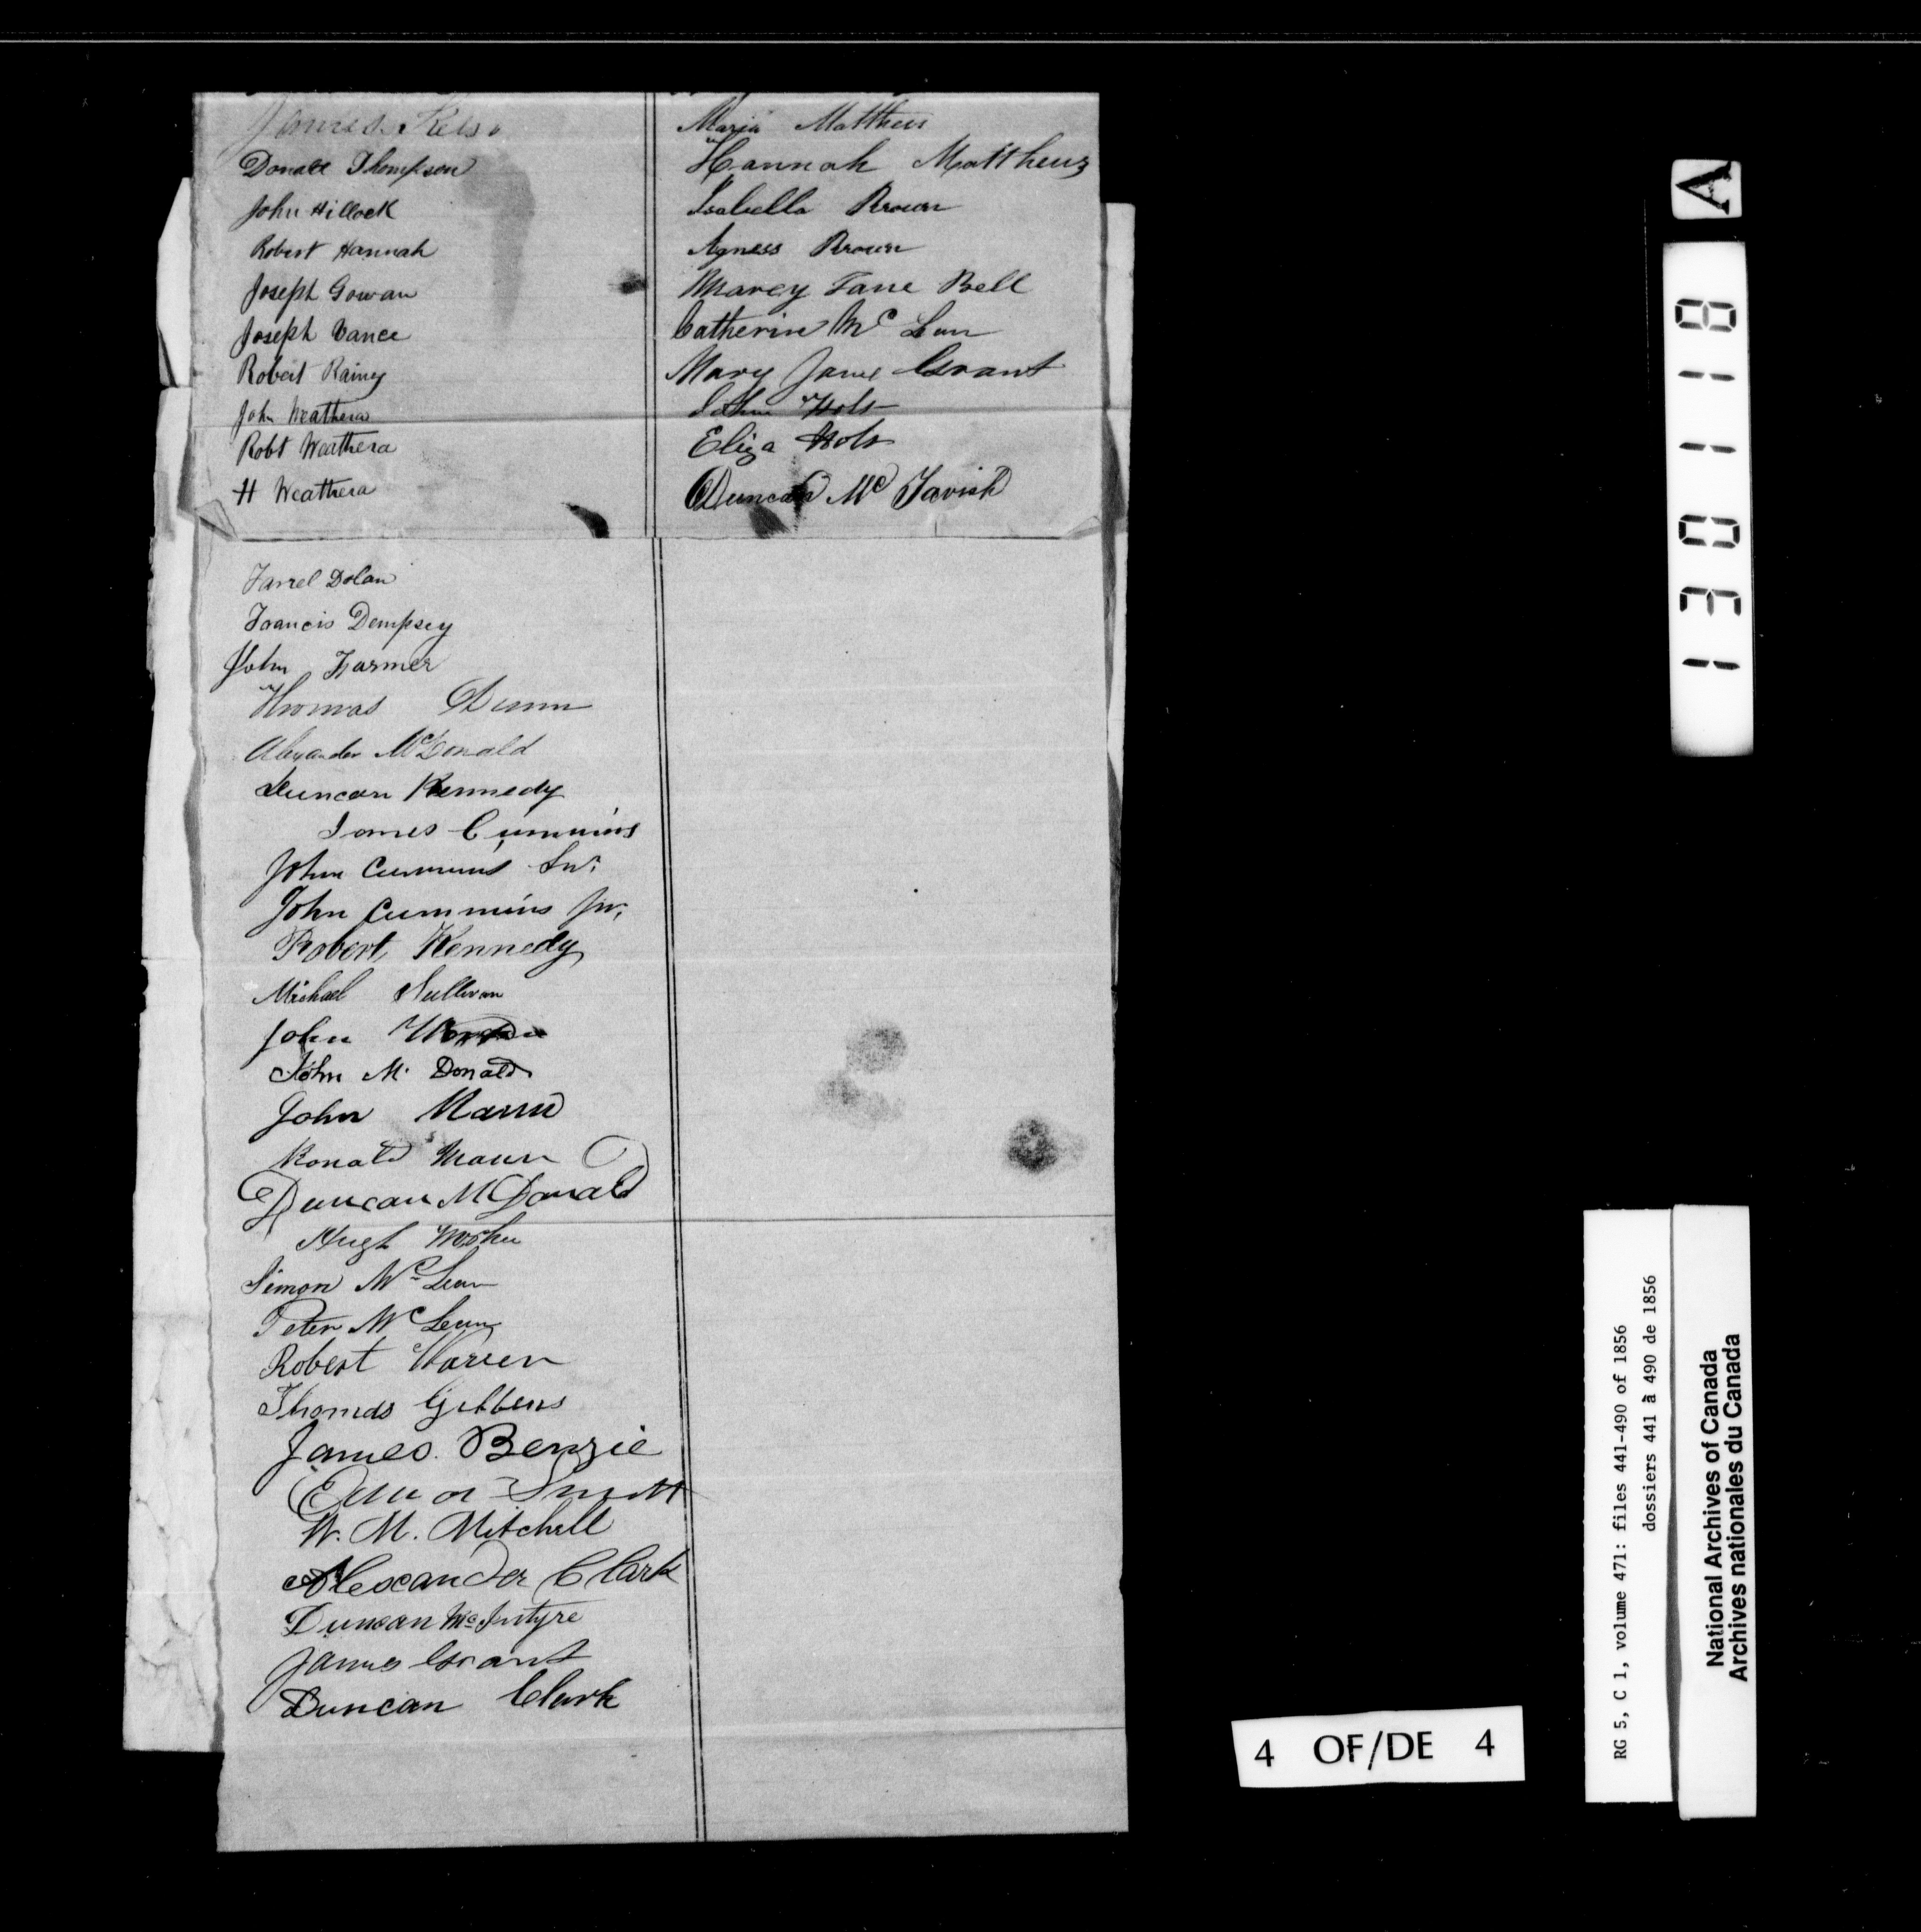 James Kelso
Donald Thompson
John Hillock
Robert Hannah
Joseph Gowan
Joseph Vance
Robert Rainey
John Weathera
Robt Weathera
H Weathera
Maria Matthews
Hannah Matthews
Isabella Brown
Agness Brown
Marey Jane Bell
Catherine Mc Lean
Mary Jane Grant
John Holt
Eliza Holt
Duncan Mc Tavish
Farrel Dolan
Francis Dempsey
John Farmer
Thomas Dunn
Alexander McDonald
Duncan Kennedy
James Cummins
John Cummins Snr.
John Cummins Jnr.
Robert Kennedy
Michael Sullivan
John
John Mc Donald
John Mann
Ronald Mann
Duncan McDonald
Hugh
Simon Mc Lean
Peter Mc Lean
Robert Warren
Thomas Gibbens
James. Benzie
Smith
W. M. Mitchell
Alexander Clark
Duncan McIntyre
James Grant
Duncan Clark
A
1301118
4 OF/DE 4
RG 5, C 1, volume 471: files 441-490 of 1856
dossiers 441 à 490 de 1856
National Archives of Canada
Archives nationales du Canada